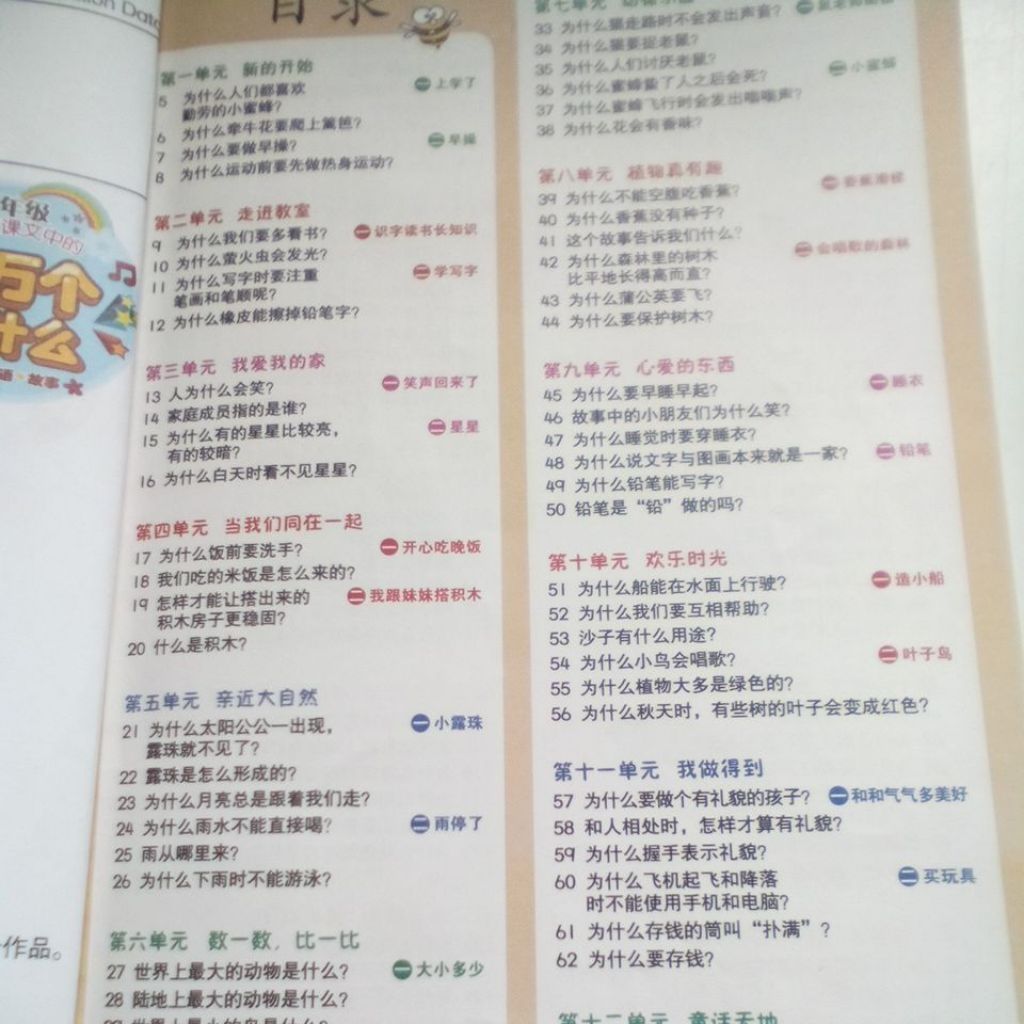 目录
第一单元 新的开始
一 上学了
5 为什么人们都喜欢
勤劳的小蜜蜂？
6 为什么牵牛花要爬上篱笆？
二 早操
7 为什么要做早操？
8 为什么运动前要先做热身运动？
第二单元 走进教室
9 为什么我们要多看书？ 一 识字读书长知识
10 为什么萤火虫会发光？
11 为什么写字时要注重 二 学写字
笔画和笔顺呢？
12 为什么橡皮能擦掉铅笔字？
第三单元 我爱我的家
13 人为什么会笑？ 一 笑声回来了
14 家庭成员指的是谁？
15 为什么有的星星比较亮， 二 星星
有的较暗？
16 为什么白天时看不见星星？
第四单元 当我们同在一起
17 为什么饭前要洗手？ 一 开心吃晚饭
18 我们吃的米饭是怎么来的？
19 怎样才能让搭出来的 二 我跟妹妹搭积木
积木房子更稳固？
20 什么是积木？
第五单元 亲近大自然
21 为什么太阳公公一出现， 一 小露珠
露珠就不见了？
22 露珠是怎么形成的？
23 为什么月亮总是跟着我们走？
24 为什么雨水不能直接喝？ 二 雨停了
25 雨从哪里来？
26 为什么下雨时不能游泳？
第六单元 数一数，比一比
27 世界上最大的动物是什么？ 一 大小多少
28 陆地上最大的动物是什么？
第七单元
33 为什么猫走路时不会发出声音？
34 为什么猫要捉老鼠？
35 为什么人们讨厌老鼠？
36 为什么蜜蜂螫了人之后会死？ 二 小蜜蜂
37 为什么蜜蜂飞行时会发出嗡嗡声？
38 为什么花会有香味？
第八单元 植物真有趣
39 为什么不能空腹吃香蕉？ 一 香蕉滑梯
40 为什么香蕉没有种子？
41 这个故事告诉我们什么？
42 为什么森林里的树木 二 会唱歌的森林
比平地长得高而直？
43 为什么蒲公英要飞？
44 为什么要保护树木？
第九单元 心爱的东西
45 为什么要早睡早起？ 一 睡衣
46 故事中的小朋友们为什么笑？
47 为什么睡觉时要穿睡衣？
48 为什么说文字与图画本来就是一家？ 二 铅笔
49 为什么铅笔能写字？
50 铅笔是“铅”做的吗？
第十单元 欢乐时光
51 为什么船能在水面上行驶？ 一 造小船
52 为什么我们要互相帮助？
53 沙子有什么用途？
54 为什么小鸟会唱歌？ 二 叶子鸟
55 为什么植物大多是绿色的？
56 为什么秋天时，有些树的叶子会变成红色？
第十一单元 我做得到
57 为什么要做个有礼貌的孩子？ 一 和和气气多美好
58 和人相处时，怎样才算有礼貌？
59 为什么握手表示礼貌？
60 为什么飞机起飞和降落 二 买玩具
时不能使用手机和电脑？
61 为什么存钱的筒叫“扑满”？
62 为什么要存钱？
第十二单元 童话天地
年级
课文中的
万个
什么
故事
作品。